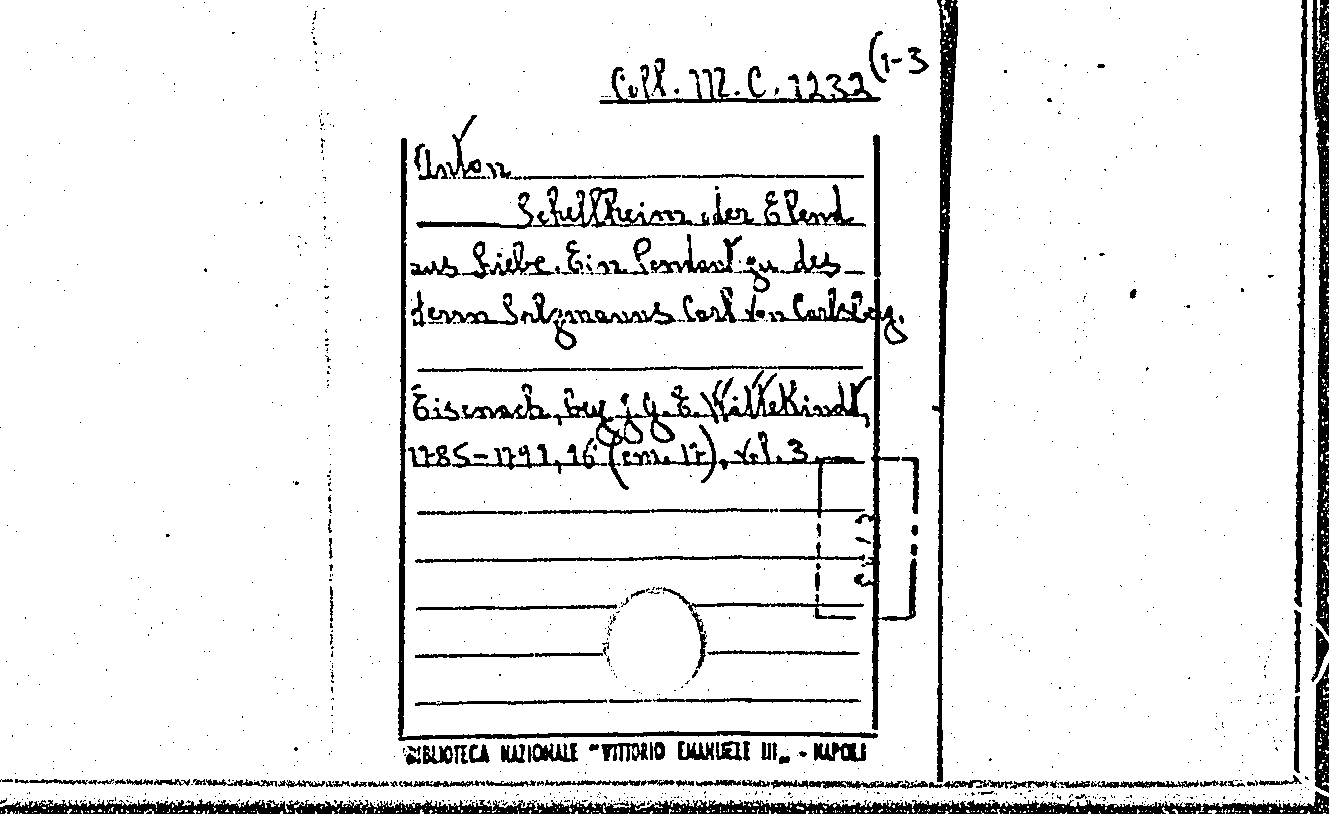 Coll. M. C. 1232 (1-3
Anton
Schellheim oder Elend
aus Liebe. Ein Pendant zu des
Herrn Salzmanns Carl von Carlsberg.
Eisenach, bey J. G. E. Wittekindt,
1785-1791, 16° (cm. 17), vol. 3
BIBLIOTECA NAZIONALE "VITTORIO EMANUELE III" - NAPOLI